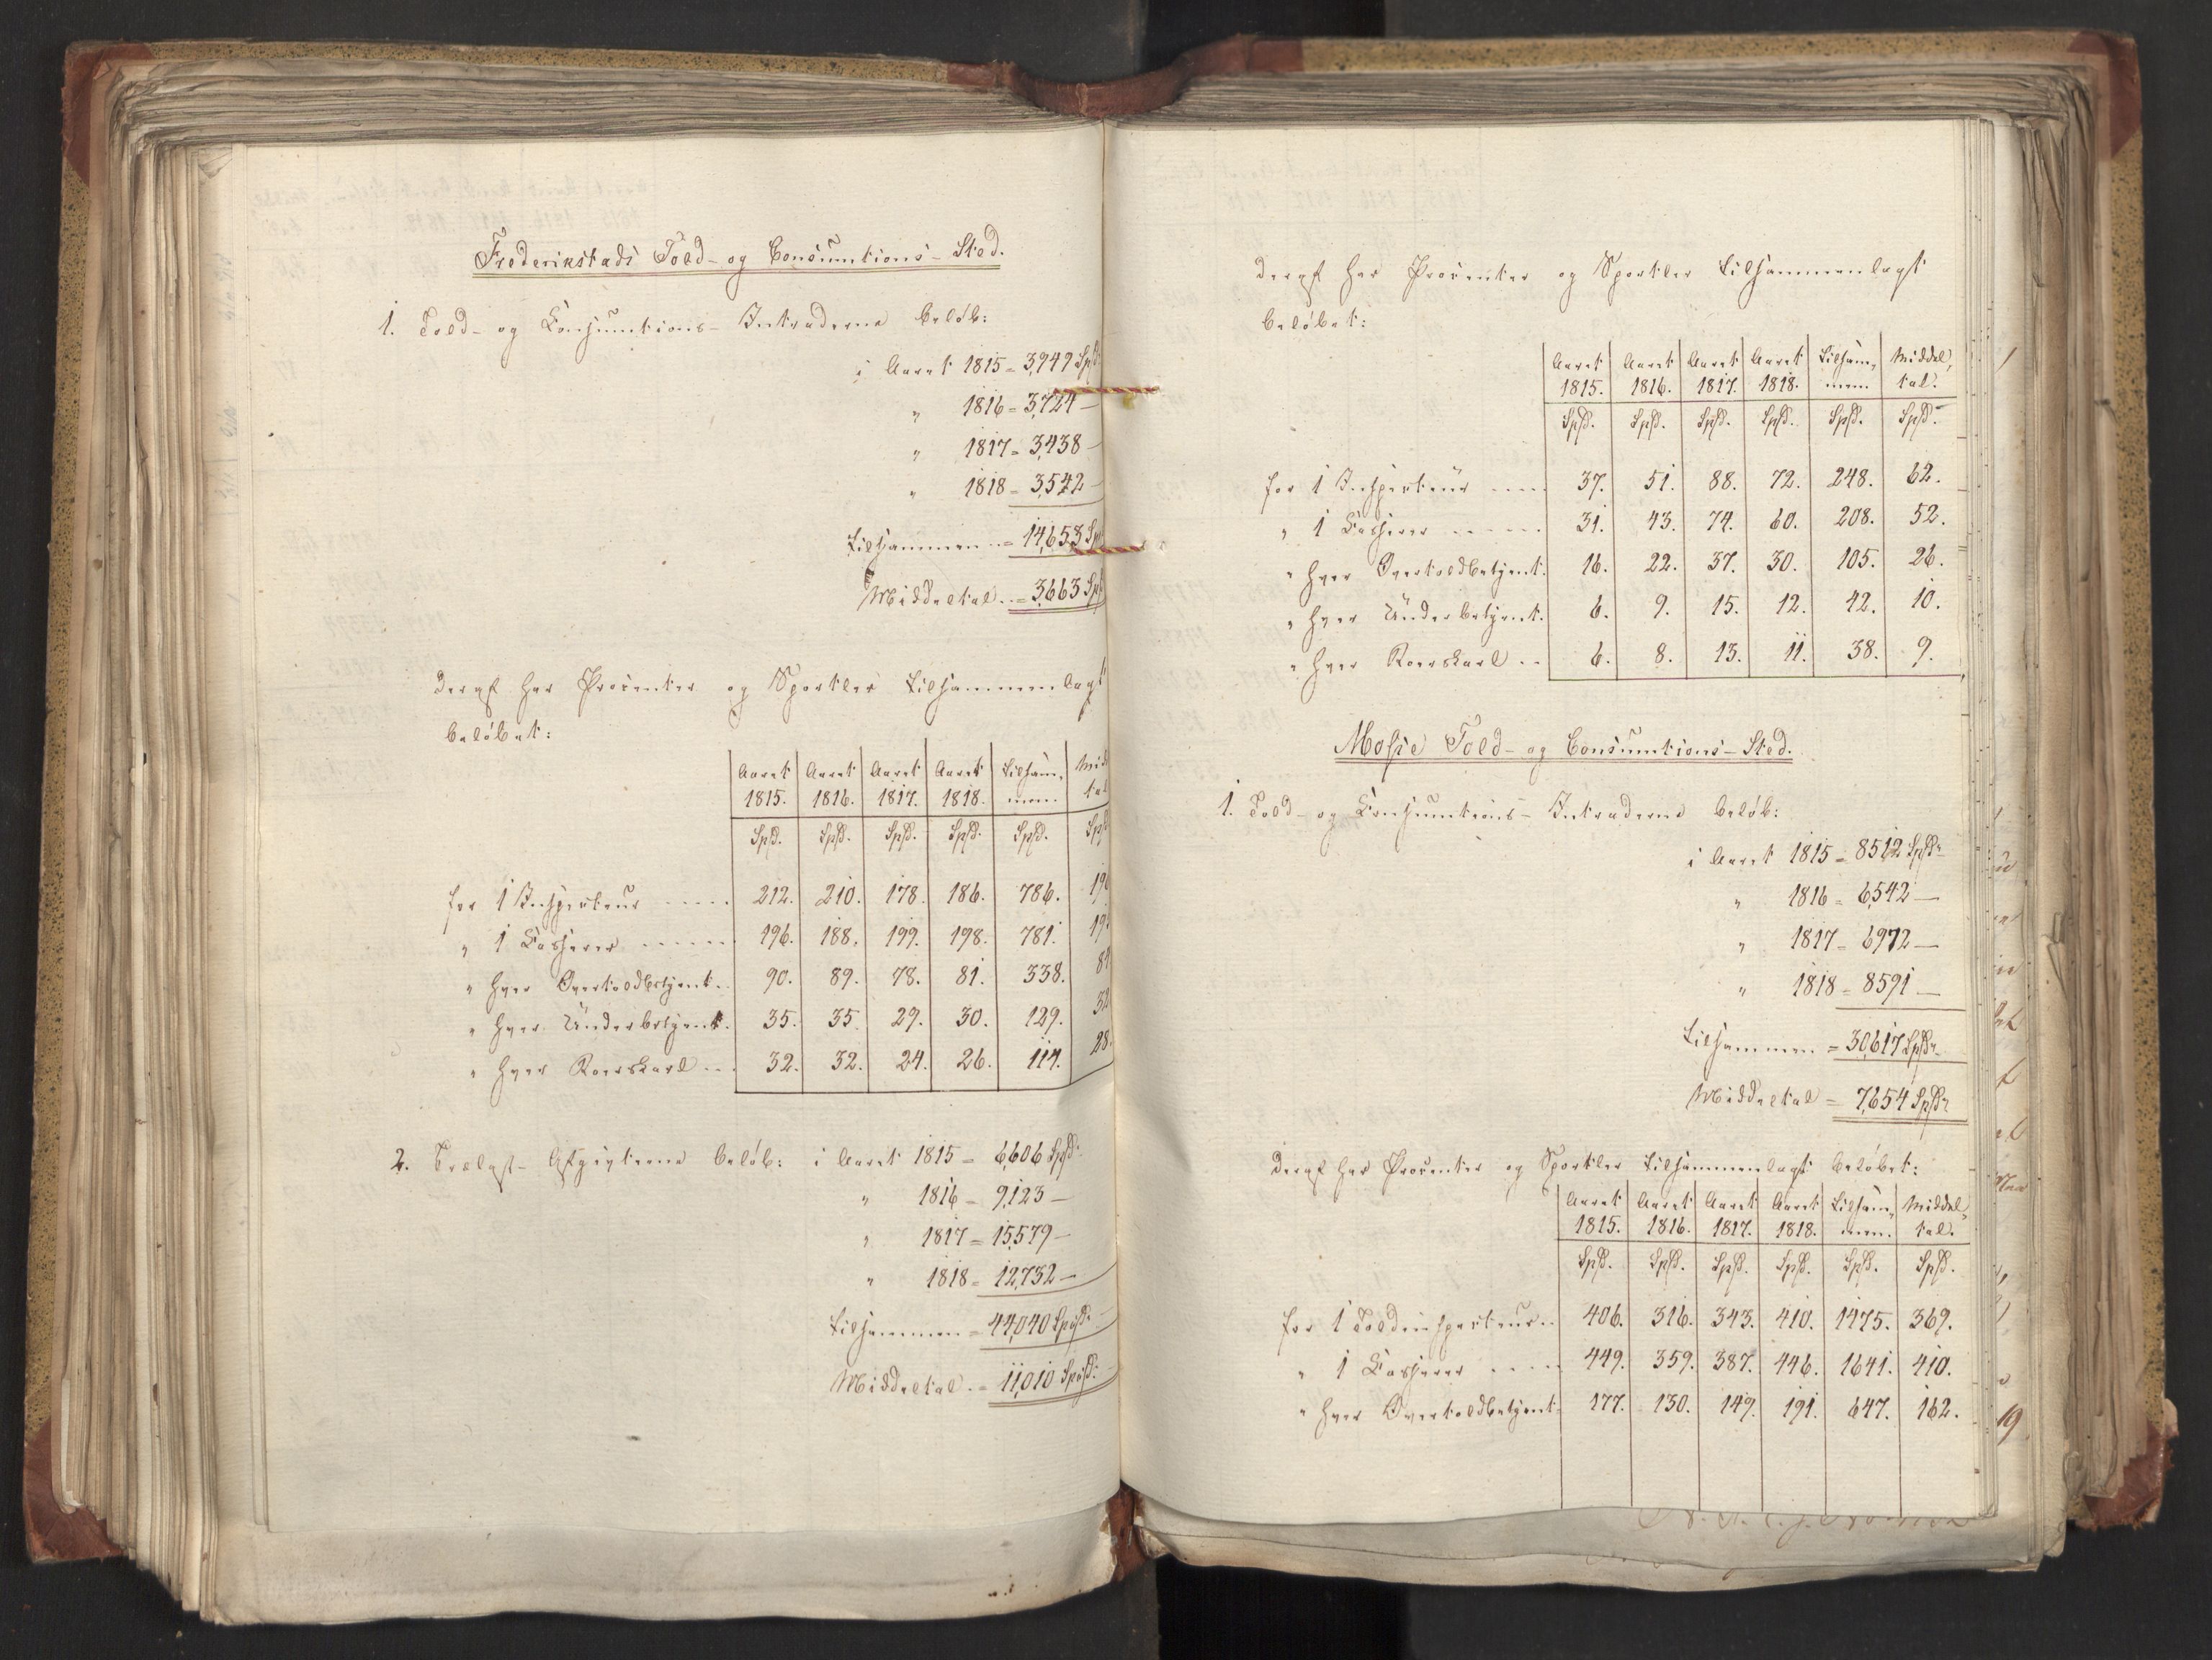 Frederikstads Told- og Consumtions-Sted.
1. Told- og Consumtions-Intraderne beløb:
i Aaret 1815 = 3,949 Spd.
" 1816 = 3,724 —
" 1817 = 3,438 —
" 1818 = 3,542 —
Tilsammen = 14,653 Spd.
Middeltal = 3,663 Spd.
Deraf har Procenter og Sportler tilsammenlagt
beløbet:
Aaret Aaret Aaret Aaret Tilsam-
1815. 1816. 1817. 1818. men.
Spd. Spd. Spd. Spd. Spd. Spd.
for 1 Inspecteur 212. 210. 178. 186. 786.
" 1 Casserer 196. 188. 199. 198. 781.
" hver Overtoldbetjent. 90. 89. 78. 81. 338.
" hver Underbetjent. 35. 35. 29. 30. 129. 32
" hver Roerskarl 32. 32. 24. 26. 114. 28.
2. Trælast-Afgivterne beløb: i Aaret 1815 = 6,606 Spd.
" 1816 = 9,123 —
" 1817 = 15,579 —
" 1818 = 12,732 —
Tilsammen = 44,040 Spd.
Middeltal = 11,010 Spd.
Deraf har Procenter og Sportler tilsammenlagt
beløbet:
Aaret Aaret Aaret Aaret Tilsam- Middel-
1815. 1816. 1817. 1818. men. tal.
Spd. Spd. Spd. Spd. Spd. Spd.
for 1 Inspecteur 37. 51. 88. 72. 248. 62.
" 1 Casserer 31. 43. 74. 60. 208. 52.
" hver Overtoldbetjent. 16. 22. 37. 30. 105. 26.
" hver Underbetjent. 6. 9. 15. 12. 42. 10.
" hver Roerskarl 6. 8. 13. 11. 38. 9.
Mosse Told- og Consumtions-Sted.
1. Told- og Consumtions-Intraderne beløb:
i Aaret 1815 = 8512 Spd.
" 1816 = 6,542 —
" 1817 = 6972 —
" 1818 = 8591 —
Tilsammen = 30,617 Spd.
Middeltal = 7,654 Spd.
Deraf har Procenter og Sportler tilsammenlagt beløbet:
Aaret Aaret Aaret Aaret Tilsam- Middel-
1815. 1816. 1817. 1818. men. tal.
Spd. Spd. Spd. Spd. Spd. Spd.
for 1 Toldinspecteur 406. 316. 343. 410. 1475. 369.
" 1 Casserer 449. 359. 387. 446. 1641. 410.
" hver Overtoldbetjent 177. 130. 149. 191. 647. 162.